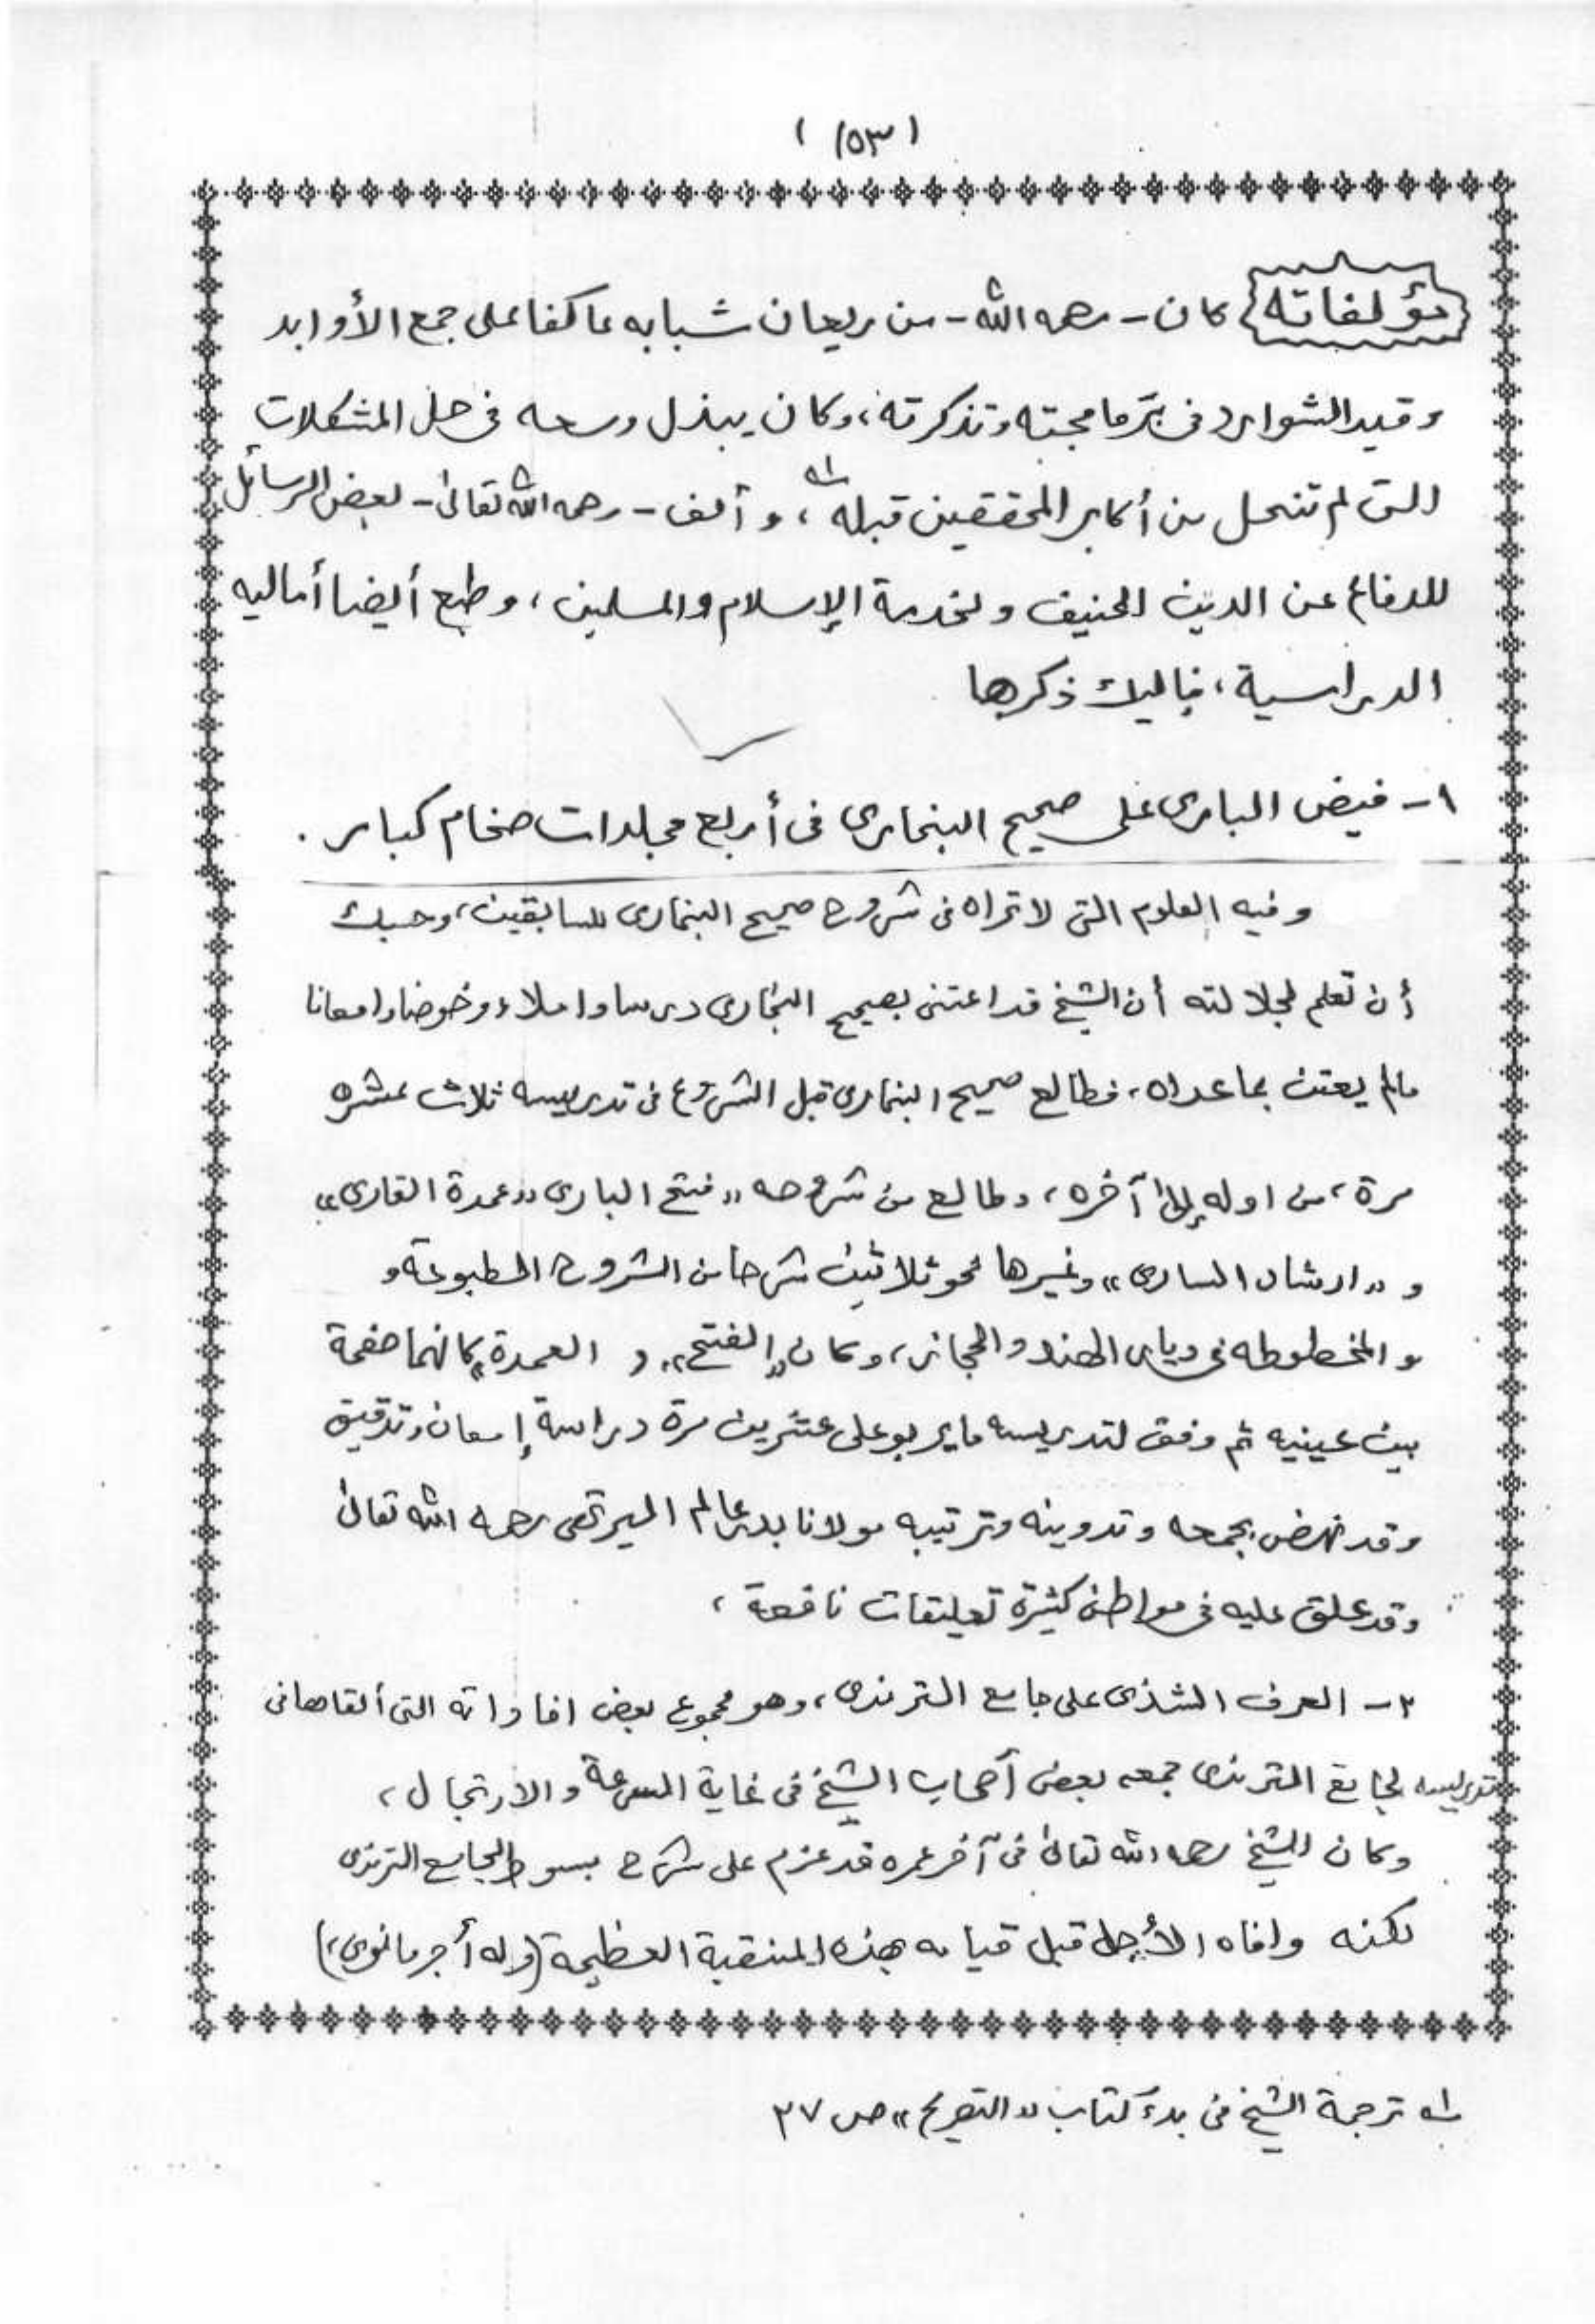 (١٥٣)
مؤلفاته كان - رحمه الله - من ريعان شبابه عاكفا على جمع الأوابد
وقيد الشوارد فى برنامجته وتذكرته، وكان يبذل وسعه فى حل المشكلات
التى لم تنحل من أكابر المحققين قبله ؂١، وألف - رحمه الله تعالى - بعض الرسائل
للدفاع عن الدين الحنيف ولخدمة الإسلام والمسلمين، وطبع أيضا أماليه
الدراسية، فإليك ذكرها
١- فيض البارى على صحيح البخارى فى أربع مجلدات ضخام كبار .
وفيه العلوم التى لا تراه فى شروح صحيح البخارى للسابقين، وحسبك
أن تعلم لجلالته أن الشيخ قد اعتنى بصحيح البخارى درسا واملاء وخوضا وامعانا
مالم يعتن بما عداه، فطالع صحيح البخارى قبل الشروع فى تدريسه ثلاث عشره
مرة، من اوله إلى آخره، وطالع من شروحه «فتح البارى» «عمدة القارى»
و «ارشاد السارى» وغيرها نحو ثلاثين شرحا من الشروح المطبوعة و
و المخطوطه فى ديار الهند والحجاز، وكان «الفتح»، و العمدة» كانهما صفحة
بين عينيه ثم وفق لتدريسه ما يربو على عشرين مرة دراسة إمعان وتدقيق
وقد نهض بجمعه وتدوينه وترتيبه مولانا بدر عالم الميرتهى رحمه الله تعالى
وقد علق عليه فى مواطن كثيرة تعليقات نافعة،
٢- العرف الشذى على جامع الترمذى، وهو مجموع بعض افاداته التى ألقاها فى
تدريسه لجامع الترمذى جمعه بعض أصحاب الشيخ فى غاية السرعة والارتجال،
وكان الشيخ رحمه الله تعالى فى آخر عمره قد عزم على شرح بسوط لجامع الترمذى
لكنه وافاه الأجل قبل قيامه بهذه المنقبة العظيمة (وله أجر مانوى،)
؂١ ترجمة الشيخ فى بدء كتاب «التصريح» ص ٢٧